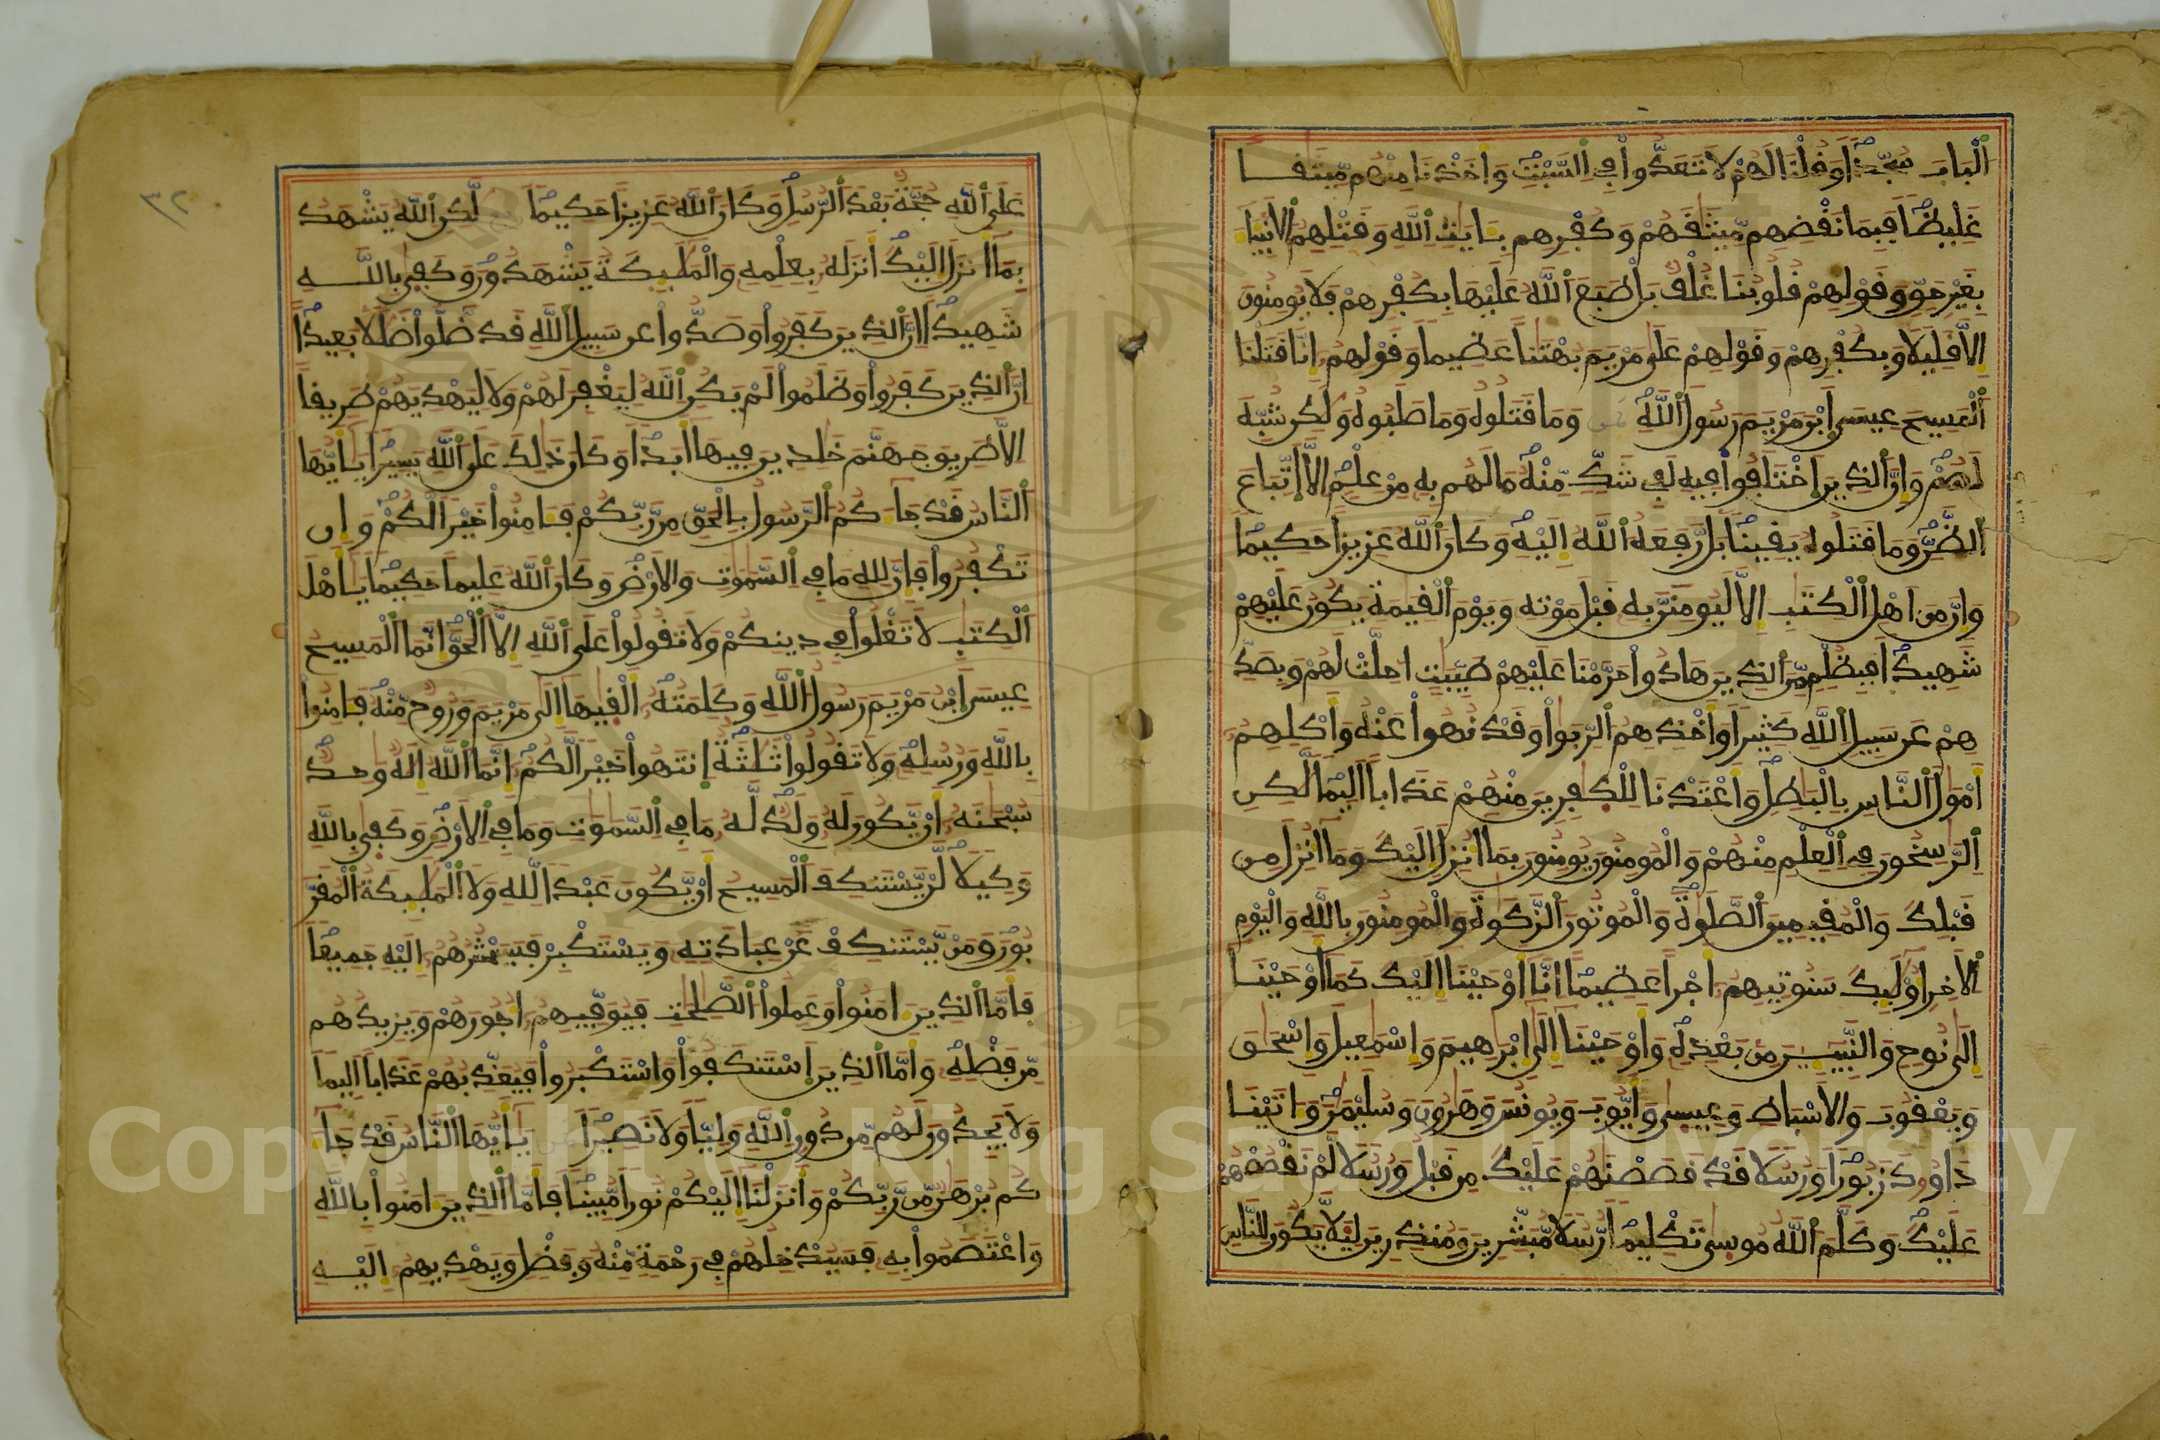 اَلْبَابَ سُجَّدًا وَقُلْنَا لَهُمْ لَا تَعَدُّوا۟ فِے اِ۬لسَّبْتِ وَأَخَذْنَا مِنْهُم مِّيثَٰقًا
غَلِيظًا فَبِمَا نَقْضِهِم مِّيثَٰقَهُمْ وَكُفْرِهِم بِـَٔايَٰتِ اِ۬للَّهِ وَقَتْلِهِمُ اُ۬لَانۢبِيَآءَ
بِغَيْرِ حَقٍّ وَقَوْلِهِمْ قُلُوبُنَا غُلْفٌۢ بَلْ طَبَعَ اَ۬للَّهُ عَلَيْهَا بِكُفْرِهِمْ فَلَا يُومِنُونَ
إِلَّا قَلِيلًا وَبِكُفْرِهِمْ وَقَوْلِهِمْ عَلَىٰ مَرْيَمَ بُهْتَٰنًا عَظِيمًا وَقَوْلِهِمُۥ إِنَّا قَتَلْنَا
اَلْمَسِيحَ عِيسَى اَ۪بْنَ مَرْيَمَ رَسُولَ اَ۬للَّهِ وَمَا قَتَلُوهُ وَمَا صَلَبُوهُ وَلَٰكِن شُبِّهَ
لَهُمْ وَإِنَّ اَ۬لذِينَ اَ۪خْتَلَفُوا۟ فِيهِ لَفِے شَكٍّ مِّنْهُ مَا لَهُم بِهِۦ مِنْ عِلْمٍ اِلَّا اَ۪تِّبَاعَ
اَلظَّنِّ وَمَا قَتَلُوهُ يَقِينًۢا بَل رَّفَعَهُ اُ۬للَّهُ إِلَيْهِ وَكَانَ اَ۬للَّهُ عَزِيزًا حَكِيمًا
وَإِن مِّنَ اَهْلِ اِ۬لْكِتَٰبِ إِلَّا لَيُومِنَنَّ بِهِۦ قَبْلَ مَوْتِهِۦ وَيَوْمَ اَ۬لْقِيَٰمَةِ يَكُونُ عَلَيْهِمْ
شَهِيدًا فَبِظُلْمٍ مِّنَ اَ۬لذِينَ هَادُوا۟ حَرَّمْنَا عَلَيْهِمْ طَيِّبَٰتٍ اُحِلَّتْ لَهُمْ وَبِصَدِّ
هِمْ عَن سَبِيلِ اِ۬للَّهِ كَثِيرًا وَأَخْذِهِمُ اُ۬لرِّبَوٰا۟ وَقَدْ نُهُوا۟ عَنْهُ وَأَكْلِهِمُۥ
أَمْوَٰلَ اَ۬لنَّاسِ بِالْبَٰطِلِ وَأَعْتَدْنَا لِلْكَٰفِرِينَ مِنْهُمْ عَذَابًا اَلِيمًا لَّٰكِنِ
اِ۬لرَّٰسِخُونَ فِے اِ۬لْعِلْمِ مِنْهُمْ وَالْمُومِنُونَ يُومِنُونَ بِمَآ أُنزِلَ إِلَيْكَ وَمَآ أُنزِلَ مِن
قَبْلِكَ وَالْمُقِيمِينَ اَ۬لصَّلَوٰةَ وَالْمُوتُونَ اَ۬لزَّكَوٰةَ وَالْمُومِنُونَ بِاللَّهِ وَالْيَوْمِ
اِ۬لَاخِرِ أُوْلَٰٓئِكَ سَنُوتِيهِمُۥ أَجْرًا عَظِيمًا اِنَّآ أَوْحَيْنَآ إِلَيْكَ كَمَآ أَوْحَيْنَآ
إِلَىٰ نُوحٍ وَالنَّبِيٓـِٕينَ مِنۢ بَعْدِهِۦ وَأَوْحَيْنَآ إِلَىٰٓ إِبْرَٰهِيمَ وَإِسْمَٰعِيلَ وَإِسْحَٰقَ
وَيَعْقُوبَ وَالَاسْبَاطِ وَعِيسَىٰ وَأَيُّوبَ وَيُونُسَ وَهَٰرُونَ وَسُلَيْمَٰنَ وَءَاتَيْنَا
دَاوُۥدَ زَبُورًا وَرُسُلًا قَدْ قَصَصْنَٰهُمْ عَلَيْكَ مِن قَبْلُ وَرُسُلًا لَّمْ نَقْصُصْهُمْ
عَلَيْكَ وَكَلَّمَ اَ۬للَّهُ مُوسَىٰ تَكْلِيمًا رُّسُلًا مُّبَشِّرِينَ وَمُنذِرِينَ لِيَلَّا يَكُونَ لِلنَّاسِ
٣٢
عَلَى اَ۬للَّهِ حُجَّةٌۢ بَعْدَ اَ۬لرُّسُلِ وَكَانَ اَ۬للَّهُ عَزِيزًا حَكِيمًا لَّٰكِنِ اِ۬للَّهُ يَشْهَدُ
بِمَآ أَنزَلَ إِلَيْكَ أَنزَلَهُۥ بِعِلْمِهِۦ وَالْمَلَٰٓئِكَةُ يَشْهَدُونَ وَكَفَىٰ بِاللَّهِ
شَهِيدًا اِنَّ اَ۬لذِينَ كَفَرُوا۟ وَصَدُّوا۟ عَن سَبِيلِ اِ۬للَّهِ قَد ضَّلُّوا۟ ضَلَٰلًۢا بَعِيدًا
اِنَّ اَ۬لذِينَ كَفَرُوا۟ وَظَلَمُوا۟ لَمْ يَكُنِ اِ۬للَّهُ لِيَغْفِرَ لَهُمْ وَلَا لِيَهْدِيَهُمْ طَرِيقًا
اِلَّا طَرِيقَ جَهَنَّمَ خَٰلِدِينَ فِيهَآ أَبَدًا وَكَانَ ذَٰلِكَ عَلَى اَ۬للَّهِ يَسِيرًا يَٰٓأَيُّهَا
اَ۬لنَّاسُ قَدْ جَآءَكُمُ اُ۬لرَّسُولُ بِالْحَقِّ مِن رَّبِّكُمْ فَـَٔامِنُوا۟ خَيْرًا لَّكُمْ وَإِن
تَكْفُرُوا۟ فَإِنَّ لِلهِ مَا فِے اِ۬لسَّمَٰوَٰتِ وَالَارْضِ وَكَانَ اَ۬للَّهُ عَلِيمًا حَكِيمًا يَٰٓأَهْلَ
اَ۬لْكِتَٰبِ لَا تَغْلُوا۟ فِے دِينِكُمْ وَلَا تَقُولُوا۟ عَلَى اَ۬للَّهِ إِلَّا اَ۬لْحَقَّ إِنَّمَا اَ۬لْمَسِيحُ
عِيسَى اَ۪بْنُ مَرْيَمَ رَسُولُ اُ۬للَّهِ وَكَلِمَتُهُۥٓ أَلْقَيٰهَآ إِلَىٰ مَرْيَمَ وَرُوحٌ مِّنْهُ فَـَٔامِنُوا۟
بِاللَّهِ وَرُسُلِهِۦ وَلَا تَقُولُوا۟ ثَلَٰثَةٌ اِ۪نتَهُوا۟ خَيْرًا لَّكُمُۥ إِنَّمَا اَ۬للَّهُ إِلَٰهٌ وَٰحِدٌ
سُبْحَٰنَهُۥٓ أَنْ يَّكُونَ لَهُۥ وَلَدٌ لَّهُۥ مَا فِے اِ۬لسَّمَٰوَٰتِ وَمَا فِے اِ۬لَارْضِ وَكَفَىٰ بِاللَّهِ
وَكِيلًا لَّنْ يَّسْتَنكِفَ اَ۬لْمَسِيحُ أَنْ يَّكُونَ عَبْدًا لِّلهِ وَلَا اَ۬لْمَلَٰٓئِكَةُ اُ۬لْمُقَرَّ
بُونَ وَمَنْ يَّسْتَنكِفْ عَنْ عِبَادَتِهِۦ وَيَسْتَكْبِرْ فَسَيَحْشُرُهُمُۥٓ إِلَيْهِ جَمِيعًا
فَأَمَّا اَ۬لذِينَ ءَامَنُوا۟ وَعَمِلُوا۟ اُ۬لصَّٰلِحَٰتِ فَيُوَفِّيهِمُۥٓ أُجُورَهُمْ وَيَزِيدُهُم
مِّن فَضْلِهِۦ وَأَمَّا اَ۬لذِينَ اَ۪سْتَنكَفُوا۟ وَاسْتَكْبَرُوا۟ فَيُعَذِّبُهُمْ عَذَابًا اَلِيمًا
وَلَا يَجِدُونَ لَهُم مِّن دُونِ اِ۬للَّهِ وَلِيًّا وَلَا نَصِيرًا يَٰٓأَيُّهَا اَ۬لنَّاسُ قَدْ جَآءَ
كُم بُرْهَٰنٌ مِّن رَّبِّكُمْ وَأَنزَلْنَآ إِلَيْكُمْ نُورًا مُّبِينًا فَأَمَّا اَ۬لذِينَ ءَامَنُوا۟ بِاللَّهِ
وَاعْتَصَمُوا۟ بِهِۦ فَسَيُدْخِلُهُمْ فِے رَحْمَةٍ مِّنْهُ وَفَضْلٍ وَيَهْدِيهِمُۥٓ إِلَيْهِ
Copyright © King Saud University
1957